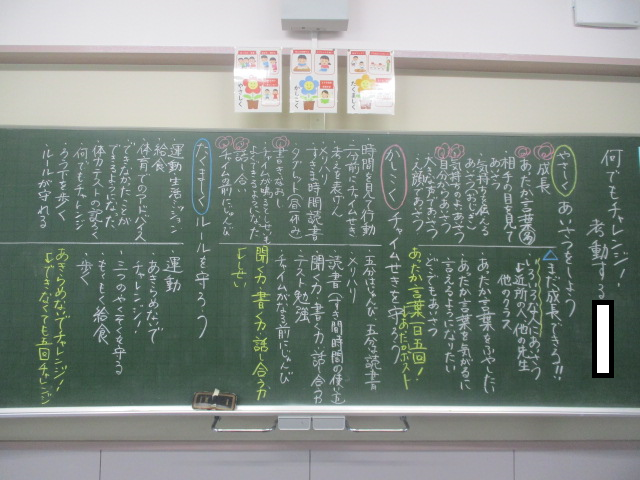 やさしく
かしこく
たくましく
何でもチャレンジ!
考動する
やさしく あいさつをしよう
成長
あたたか言葉
相手の目を見て
あいさつ
気持ちを伝える
あいさつ(おじぎ)
気持ちのよいあいさつ
自分からあいさつ
大きな声であいさつ
え顔であいさつ
まだ成長できる!!
いろいろな人にあいさつ
近所の人、他の先生
他のクラス
あたたか言葉をふやしたい
あたたか言葉を気がるに
言えるようになりたい
どこでもあいさつ
あたたか言葉一日五回!
あたたかポスト
かしこく チャイムせきを守ろう
時間を見て行動
二分前チャイムせき
本を表げん
メリハリ
すきま時間読書
タブレット(昼休み)
書きなおし
話し合い
チャイム前にじゅんび
五分はじゅんび、五分読書
メリハリ
読書(すき間時間の使い方)
聞く力、書く力、話し合う力
テスト勉強
チャイムがなる前にじゅんび
聞く力 書く力 話し合う力
たくましく ルールを守ろう
運動、生活ビジョン
給食
体育でのアドバイス
できなかったことが
できるようになった
体力テストの記ろく
何でもチャレンジ
クラブを歩く
ルールが守れる
運動
あきらめないで
チャレンジ!
三つのやくそくを守る
もくもく給食
歩く
あきらめないでチャレンジ!
できなくても五回チャレンジ